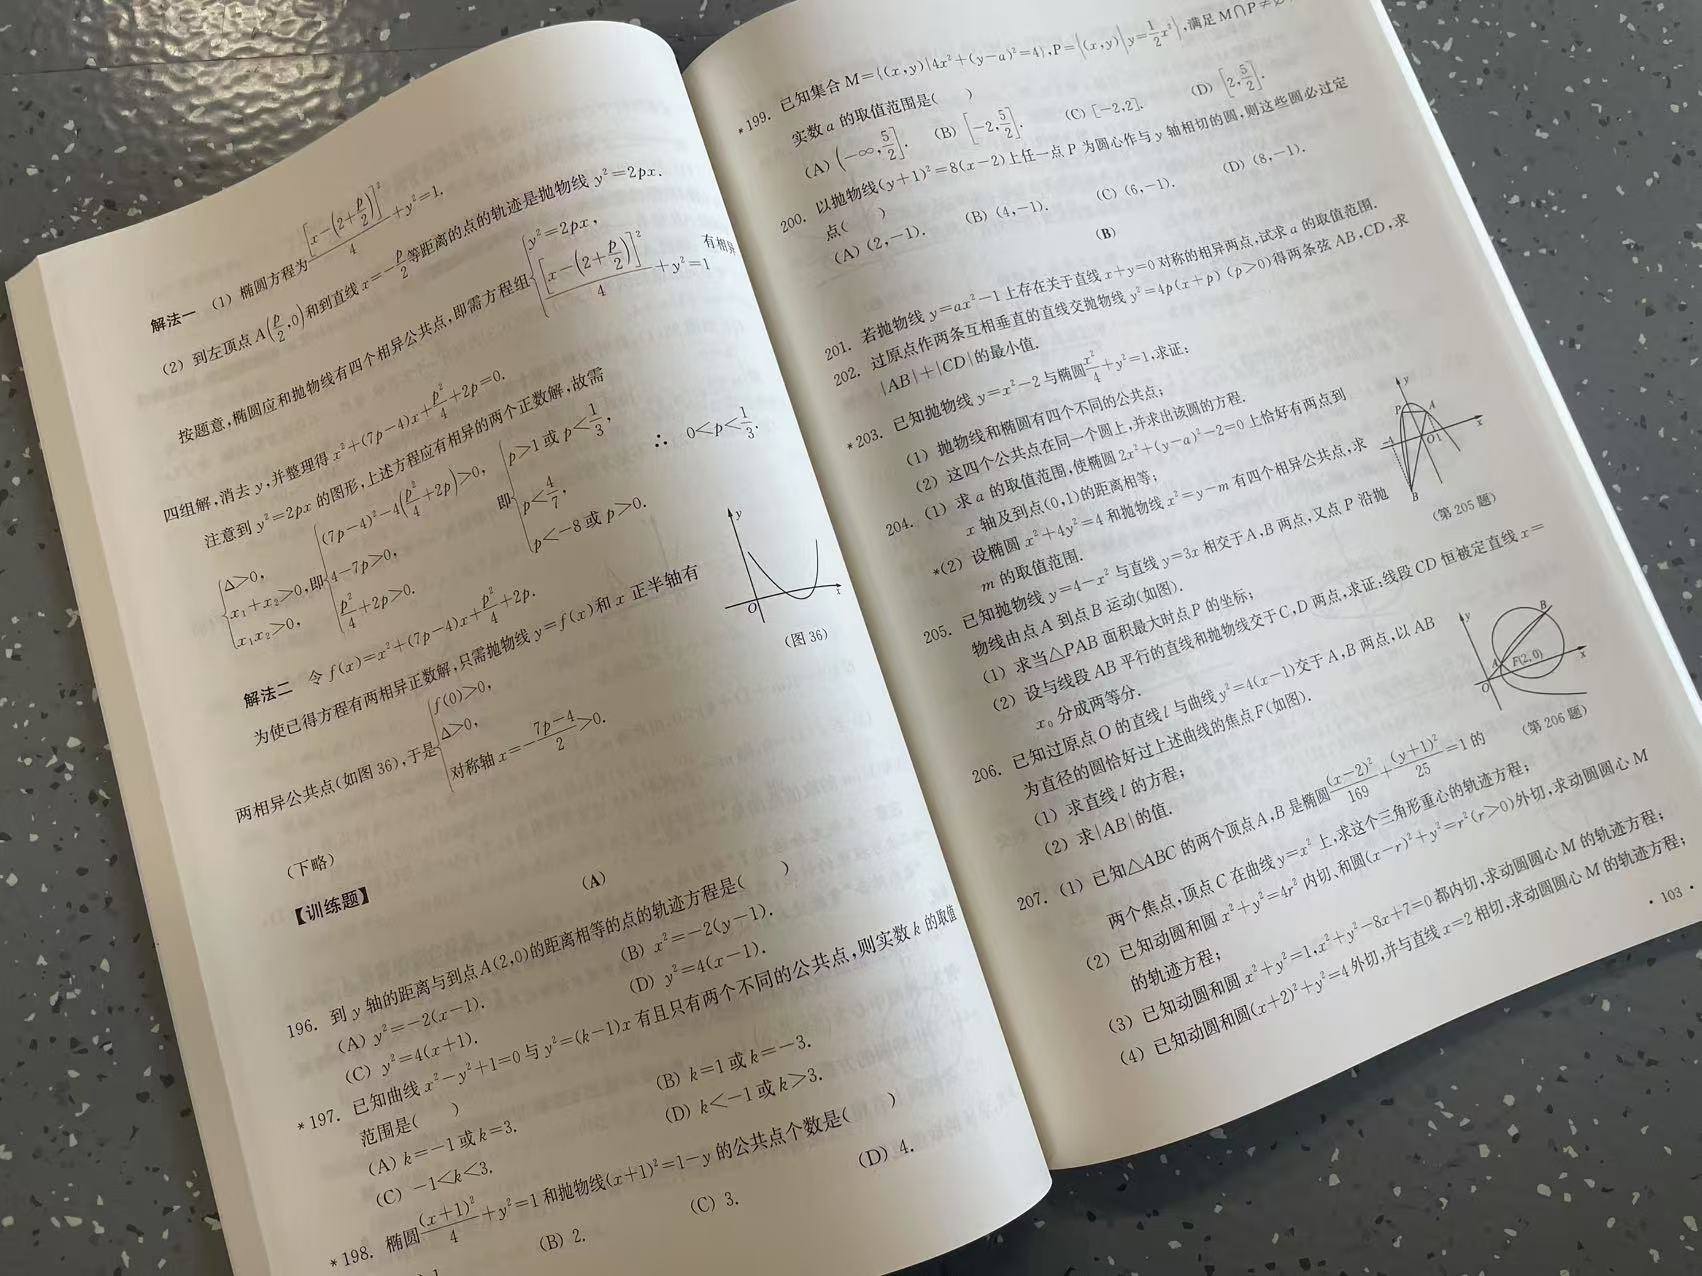 解法一 (1) 椭圆方程为[x-(2+p/2)]²/4+y²=1,
(2) 到左顶点 A(p/2,0)和到直线 x=-p/2等距离的点的轨迹是抛物线 y²=2px.
按题意,椭圆应和抛物线有四个相异公共点,即需方程组{y²=2px, [x-(2+p/2)]²/4+y²=1 有相异
四组解,消去 y,并整理得 x²+(7p-4)x+p²/4+2p=0.
注意到 y²=2px 的图形,上述方程应有相异的两个正数解,故需
{Δ>0, x₁+x₂>0, x₁x₂>0, 即{(7p-4)²-4(p²/4+2p)>0, 4-7p>0, p²/4+2p>0. 即{p>1 或 p<1/3, p<4/7, p<-8 或 p>0. ∴ 0<p<1/3.
解法二 令 f(x)=x²+(7p-4)x+p²/4+2p.
为使已得方程有两相异正数解,只需抛物线 y=f(x)和 x 正半轴有
两相异公共点(如图 36),于是{f(0)>0, Δ>0, 对称轴 x=-(7p-4)/2>0.
(下略)
y
O
x
(图 36)
【训练题】
(A)
196. 到 y 轴的距离与到点 A(2,0)的距离相等的点的轨迹方程是( )
(A) y²=-2(x-1). (B) x²=-2(y-1).
(C) y²=4(x+1). (D) y²=4(x-1).
*197. 已知曲线 x²-y²+1=0 与 y²=(k-1)x 有且只有两个不同的公共点,则实数 k 的取值
范围是( )
(A) k=-1 或 k=3. (B) k=1 或 k=-3.
(C) -1<k<3. (D) k<-1 或 k>3.
*198. 椭圆(x+1)²/4+y²=1 和抛物线(x+1)²=1-y 的公共点个数是( )
1. (B) 2. (C) 3. (D) 4.
*199. 已知集合 M={(x,y)|4x²+(y-a)²=4},P={(x,y)|y=1/2x²},满足 M∩P≠∅,
实数 a 的取值范围是( )
(A) (-∞,5/2]. (B) [-2,5/2]. (C) [-2,2]. (D) [2,5/2].
200. 以抛物线(y+1)²=8(x-2)上任一点 P 为圆心作与 y 轴相切的圆,则这些圆必过定
点( )
(A) (2,-1). (B) (4,-1). (C) (6,-1). (D) (8,-1).
(B)
201. 若抛物线 y=ax²-1 上存在关于直线 x+y=0 对称的相异两点,试求 a 的取值范围.
202. 过原点作两条互相垂直的直线交抛物线 y²=4p(x+p) (p>0)得两条弦 AB,CD,求
|AB|+|CD|的最小值.
*203. 已知抛物线 y=x²-2 与椭圆x²/4+y²=1,求证:
(1) 抛物线和椭圆有四个不同的公共点;
(2) 这四个公共点在同一个圆上,并求出该圆的方程.
204. (1) 求 a 的取值范围,使椭圆 2x²+(y-a)²-2=0 上恰好有两点到
x 轴及到点(0,1)的距离相等;
*(2) 设椭圆 x²+4y²=4 和抛物线 x²=y-m 有四个相异公共点,求
m 的取值范围.
205. 已知抛物线 y=4-x² 与直线 y=3x 相交于 A,B 两点,又点 P 沿抛
物线由点 A 到点 B 运动(如图).
(1) 求当△PAB 面积最大时点 P 的坐标;
(2) 设与线段 AB 平行的直线和抛物线交于 C,D 两点,求证:线段 CD 恒被定直线 x=
x₀ 分成两等分.
y
P
A
-4
O
1
x
B
(第 205 题)
206. 已知过原点 O 的直线 l 与曲线 y²=4(x-1)交于 A,B 两点,以 AB
为直径的圆恰好过上述曲线的焦点 F(如图).
(1) 求直线 l 的方程;
(2) 求|AB|的值.
y
B
A
F(2,0)
O
x
(第 206 题)
207. (1) 已知△ABC 的两个顶点 A,B 是椭圆(x-2)²/169+(y+1)²/25=1 的
两个焦点,顶点 C 在曲线 y=x² 上,求这个三角形重心的轨迹方程;
(2) 已知动圆和圆 x²+y²=4r² 内切、和圆(x-r)²+y²=r²(r>0)外切,求动圆圆心 M
的轨迹方程;
(3) 已知动圆和圆 x²+y²=1,x²+y²-8x+7=0 都内切,求动圆圆心 M 的轨迹方程;
(4) 已知动圆和圆(x+2)²+y²=4 外切,并与直线 x=2 相切,求动圆圆心 M 的轨迹方程;
· 103 ·